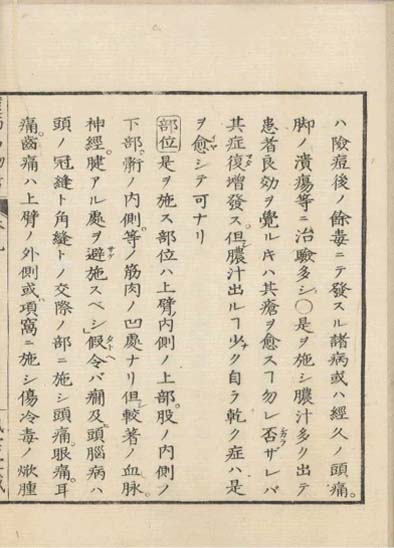 ハ險痘後ノ餘毒ニテ發スル諸病或ハ經久ノ頭痛。
脚ノ潰瘍等ニ治驗多シ○是ヲ施シ膿汁多ク出テ
患者良効ヲ覺ルキハ其瘡ヲ愈スヿ勿レ否ザレバ
其症復增發ス。但膿汁出ルヿ少ク自ラ乾ク症ハ是
ヲ愈シテ可ナリ
部位 是ヲ施ス部位ハ上臂内側ノ上部。股ノ内側ノ
下部。腨ノ内側。等ノ筋肉ノ凹處ナリ但較著ノ血脉。
神經。腱アル處ヲ避施スベシ假令バ癇及頭腦病ハ
頭ノ冠縫ト角縫トノ交際ノ部ニ施シ頭痛。眼痛。耳
痛。齒痛ハ上臂ノ外側或項窩ニ施シ傷冷毒ノ焮腫